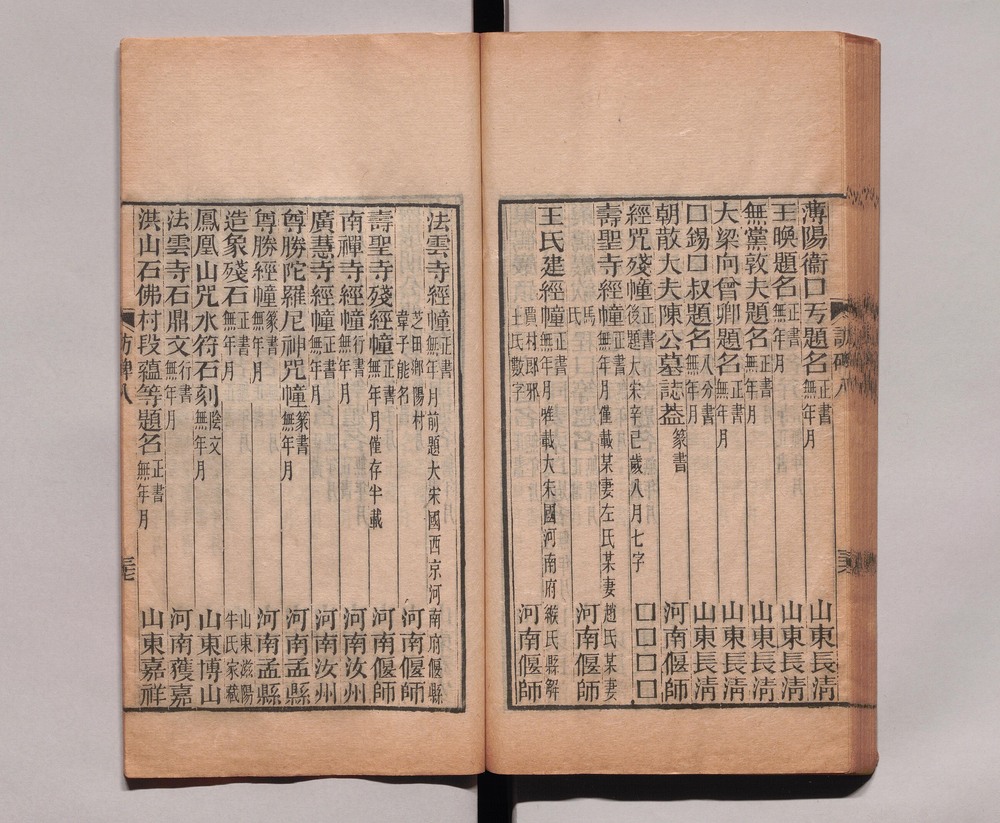 薄陽衞口𠀉題名 正書 無年月 山東長清
王㬇題名 正書 無年月 山東長清
無黨敦夫題名 正書 無年月 山東長清
大梁向曾卿題名 正書 無年月 山東長清
口錫口叔題名 八分書 無年月 山東長清
朝散大夫陳公墓誌葢 篆書 河南偃師
經咒殘幢 正書 後題大宋辛已歲八月七字 口口口口
壽聖寺經幢 正書 無年月僅載某妻左氏某妻趙氏某妻馬氏
河南偃師
王氏建經幢 正書 無年月唯載大宋國河南府緱氏縣解賈村郎邪王氏數字
河南偃師
法雲寺經幢 正書 無年月前題大宋國西京河南府偃縣芝田鄉陽村韋子能名
河南偃師
壽聖寺殘經幢 正書 無年月僅存半截 河南偃師
南禪寺經幢 行書 無年月 河南汝州
廣慧寺經幢 正書 無年月 河南汝州
尊勝陀羅尼神咒幢 篆書 無年月 河南孟縣
尊勝經幢 篆書 無年月 河南孟縣
造象殘石 正書 無年月 山東滋陽牛氏家藏
鳳凰山咒水符石刻 陰文 無年月 山東博山
法雲寺石鼎文 行書 無年月 河南獲嘉
洪山石佛村段蘊等題名 正書 無年月 山東嘉祥
訪碑八